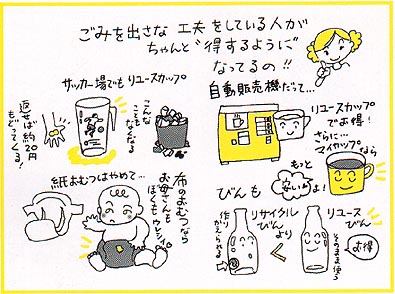 ごみを出さな 工夫をしている人が
ちゃんと"得するように"
なってるの!!
サッカー場でも リユースカップ
返せば約120円
もどってくる!
こんな
ことも
なくなる
自動販売機だって…
リユースカップ
でお得!
さらに…
マイカップなら
もっと
安いわよ!
紙おむつはやめて…
布のおむつなら
お母さんも
ぼくも ウレシイ
びんも
作り
かえられる
リサイクル
びん より
<
リユース
びん
そのまま使う
お得